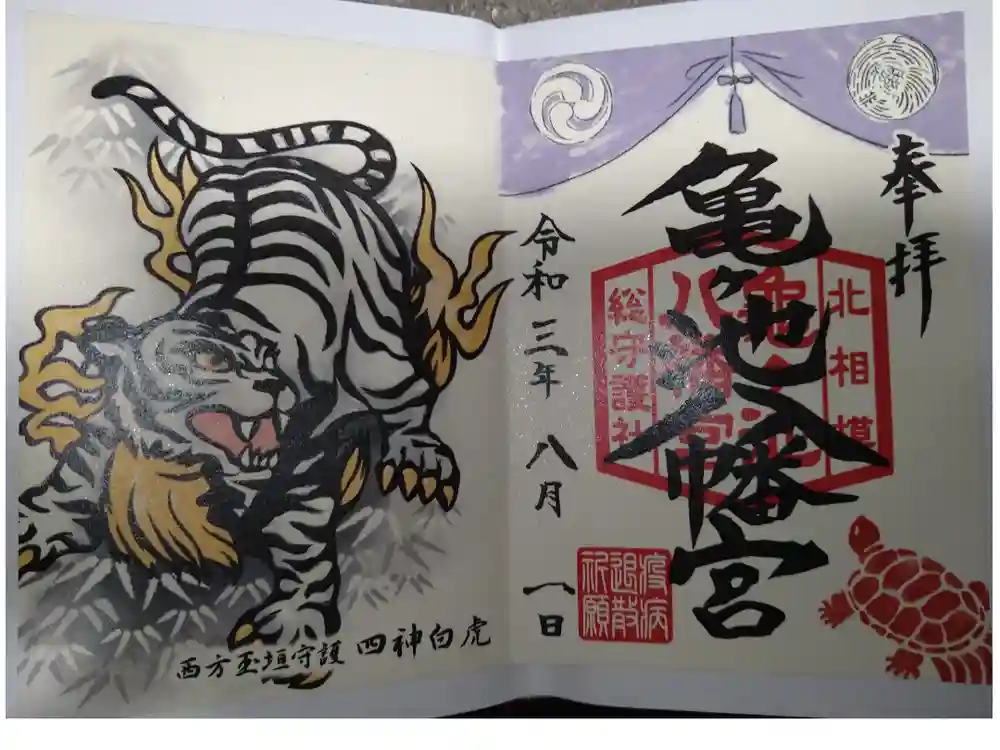 奉拝
北相模
亀ヶ池
八幡宮
総守護社
亀ヶ池八幡宮
疫病
退散
祈願
令和三年 八月 一日
西方玉垣守護 四神白虎